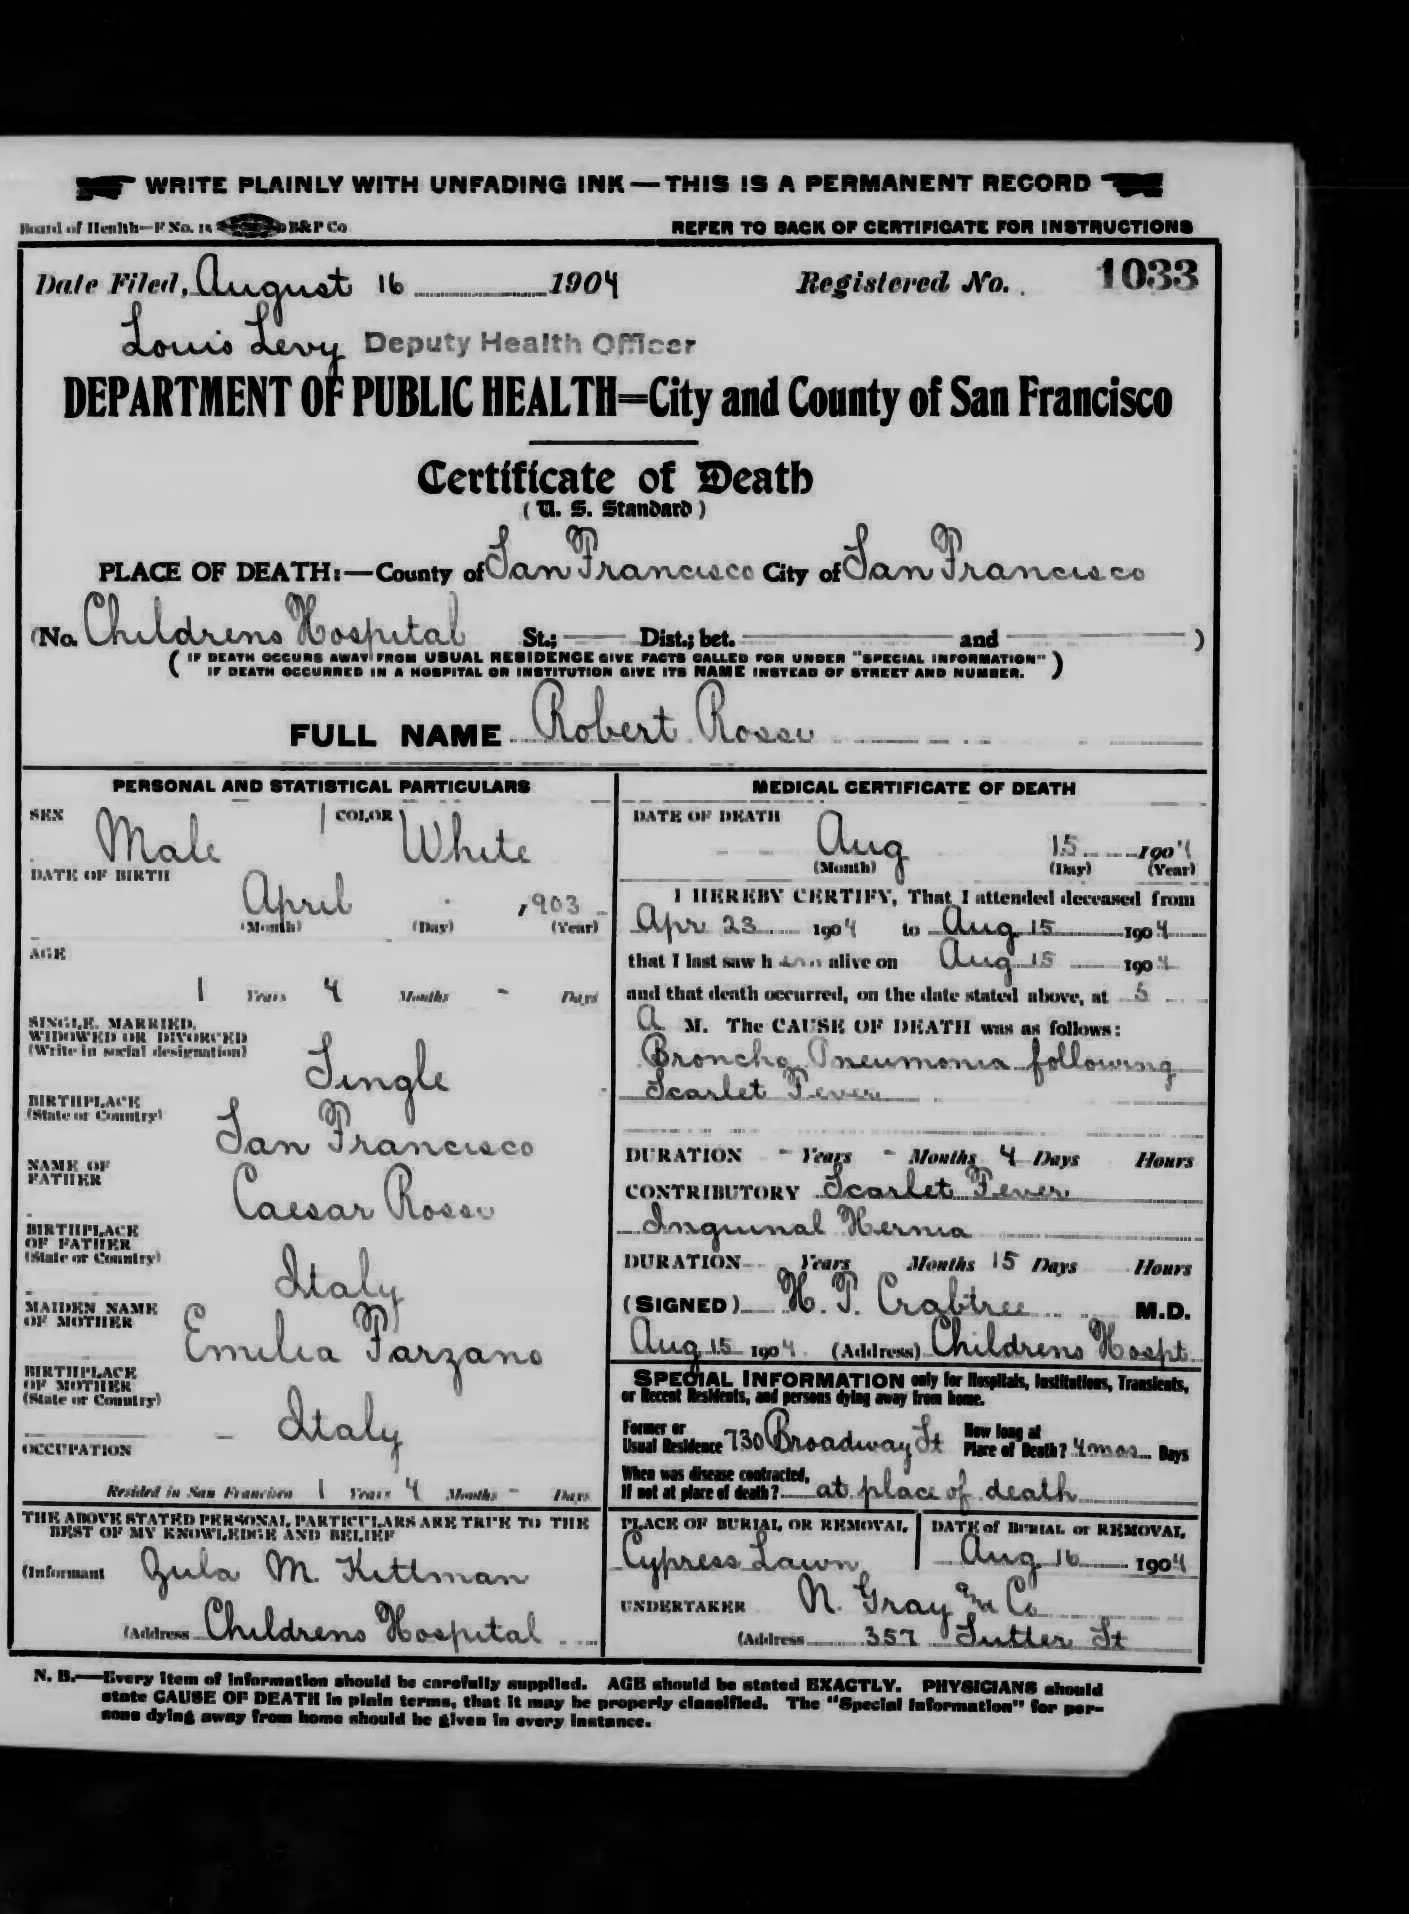 WRITE PLAINLY WITH UNFADING INK — THIS IS A PERMANENT RECORD
Board of Health—F No. 15 B&P Co REFER TO BACK OF CERTIFICATE FOR INSTRUCTIONS
Date Filed, August 16 1904 Registered No. 1033
Louis Levy Deputy Health Officer
DEPARTMENT OF PUBLIC HEALTH=City and County of San Francisco
Certificate of Death
(U. S. Standard)
PLACE OF DEATH:—County of San Francisco City of San Francisco
(No. Childrens Hospital St.; Dist.; bet. and )
(IF DEATH OCCURS AWAY FROM USUAL RESIDENCE GIVE FACTS CALLED FOR UNDER "SPECIAL INFORMATION"
IF DEATH OCCURRED IN A HOSPITAL OR INSTITUTION GIVE ITS NAME INSTEAD OF STREET AND NUMBER.)
FULL NAME Robert Rossi
PERSONAL AND STATISTICAL PARTICULARS
SEX Male COLOR White
DATE OF BIRTH
April 1903
(Month) (Day) (Year)
AGE
1 Years 4 Months - Days
SINGLE, MARRIED,
WIDOWED OR DIVORCED
(Write in social designation)
Single
BIRTHPLACE
(State or Country)
San Francisco
NAME OF
FATHER
Caesar Rossi
BIRTHPLACE
OF FATHER
(State or Country)
Italy
MAIDEN NAME
OF MOTHER
Emilia Parzano
BIRTHPLACE
OF MOTHER
(State or Country)
Italy
OCCUPATION
Resided in San Francisco 1 Years 4 Months - Days
THE ABOVE STATED PERSONAL PARTICULARS ARE TRUE TO THE
BEST OF MY KNOWLEDGE AND BELIEF
(Informant Zula M. Kittman
(Address Childrens Hospital
MEDICAL CERTIFICATE OF DEATH
DATE OF DEATH
Aug 15 1904
(Month) (Day) (Year)
I HEREBY CERTIFY, That I attended deceased from
Apr 23 1904 to Aug. 15 1904
that I last saw h im alive on Aug 15 1904
and that death occurred, on the date stated above, at 5
A M. The CAUSE OF DEATH was as follows:
Broncho Pneumonia following
Scarlet Fever
DURATION - Years - Months 4 Days Hours
CONTRIBUTORY Scarlet Fever
Inguinal Hernia
DURATION Years Months 15 Days Hours
(SIGNED) H. P. Crabtree M.D.
Aug 15 1904 (Address) Childrens Hospt.
SPECIAL INFORMATION only for Hospitals, Institutions, Transients,
or Recent Residents, and persons dying away from home.
Former or
Usual Residence 730 Broadway St
How long at
Place of Death? 4 mos Days
When was disease contracted,
If not at place of death? at place of death
PLACE OF BURIAL OR REMOVAL
Cypress Lawn
DATE of BURIAL or REMOVAL
Aug 16 1904
UNDERTAKER N. Gray and Co
(Address 357 Sutter St
N. B.—Every item of information should be carefully supplied. AGE should be stated EXACTLY. PHYSICIANS should
state CAUSE OF DEATH in plain terms, that it may be properly classified. The "Special Information" for per-
sons dying away from home should be given in every instance.